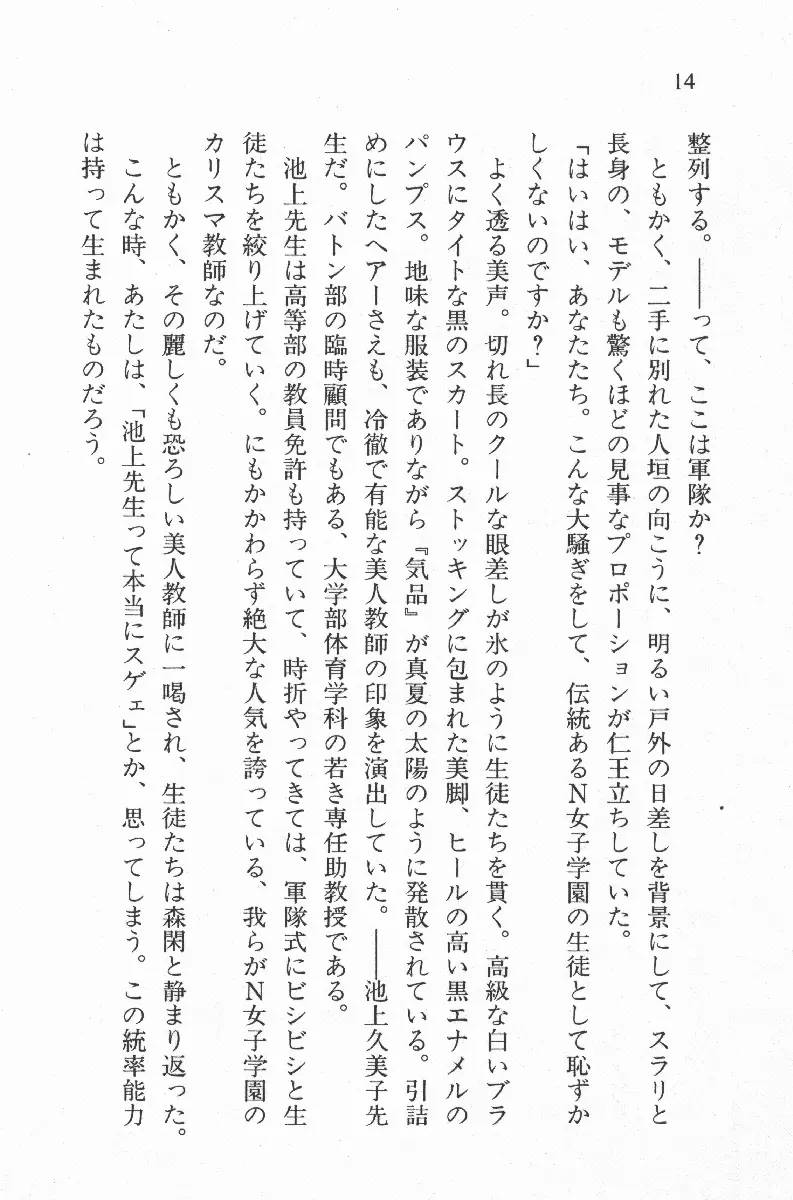 14
整列する。――って、ここは軍隊か？
ともかく、二手に別れた人垣の向こうに、明るい戸外の日差しを背景にして、スラリと
長身の、モデルも驚くほどの見事なプロポーションが仁王立ちしていた。
「はいはい、あなたたち。こんな大騒ぎをして、伝統あるＮ女子学園の生徒として恥ずか
しくないのですか？」
よく透る美声。切れ長のクールな眼差しが氷のように生徒たちを貫く。高級な白いブラ
ウスにタイトな黒のスカート。ストッキングに包まれた美脚、ヒールの高い黒エナメルの
パンプス。地味な服装でありながら『気品』が真夏の太陽のように発散されている。引詰
めにしたヘアーさえも、冷徹で有能な美人教師の印象を演出していた。――池上久美子先
生だ。バトン部の臨時顧問でもある、大学部体育学科の若き専任助教授である。
池上先生は高等部の教員免許も持っていて、時折やってきては、軍隊式にビシビシと生
徒たちを絞り上げていく。にもかかわらず絶大な人気を誇っている、我らがＮ女子学園の
カリスマ教師なのだ。
ともかく、その麗しくも恐ろしい美人教師に一喝され、生徒たちは森閑と静まり返った。
こんな時、あたしは、「池上先生って本当にスゲェ」とか、思ってしまう。この統率能力
は持って生まれたものだろう。